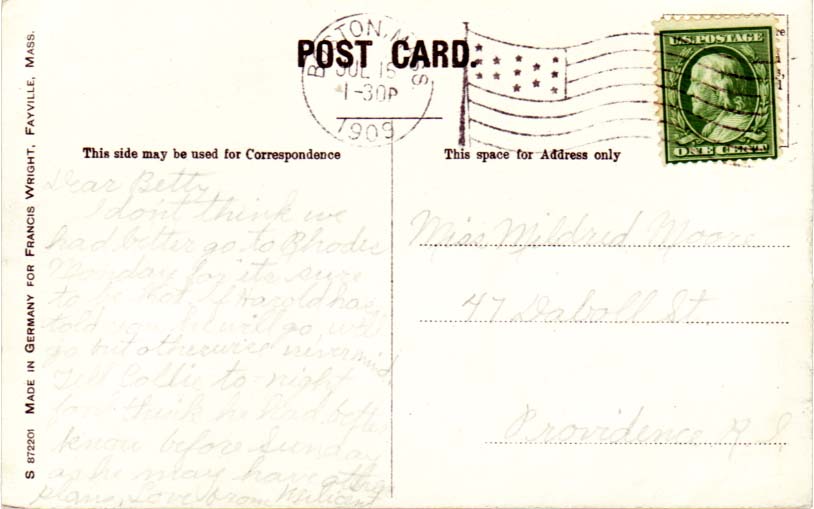 POST CARD.
BOSTON, MASS.
JUL 15
1-30P
1909
U.S. POSTAGE
ONE CENT
This side may be used for Correspondence
This space for Address only
Dear Betty
I don't think we
had better go to Rhodes
Monday for its sure
to be hot. If Harold has
told you he will go, will
go but otherwise nevermind.
Tell Collie to-night
for think he had better
know before Sunday
as he may have other
plans, Love from Milicent
Miss Mildred Moore
47 Daboll St.
Providence R.I.
S 872201 MADE IN GERMANY FOR FRANCIS WRIGHT, FAYVILLE, MASS.